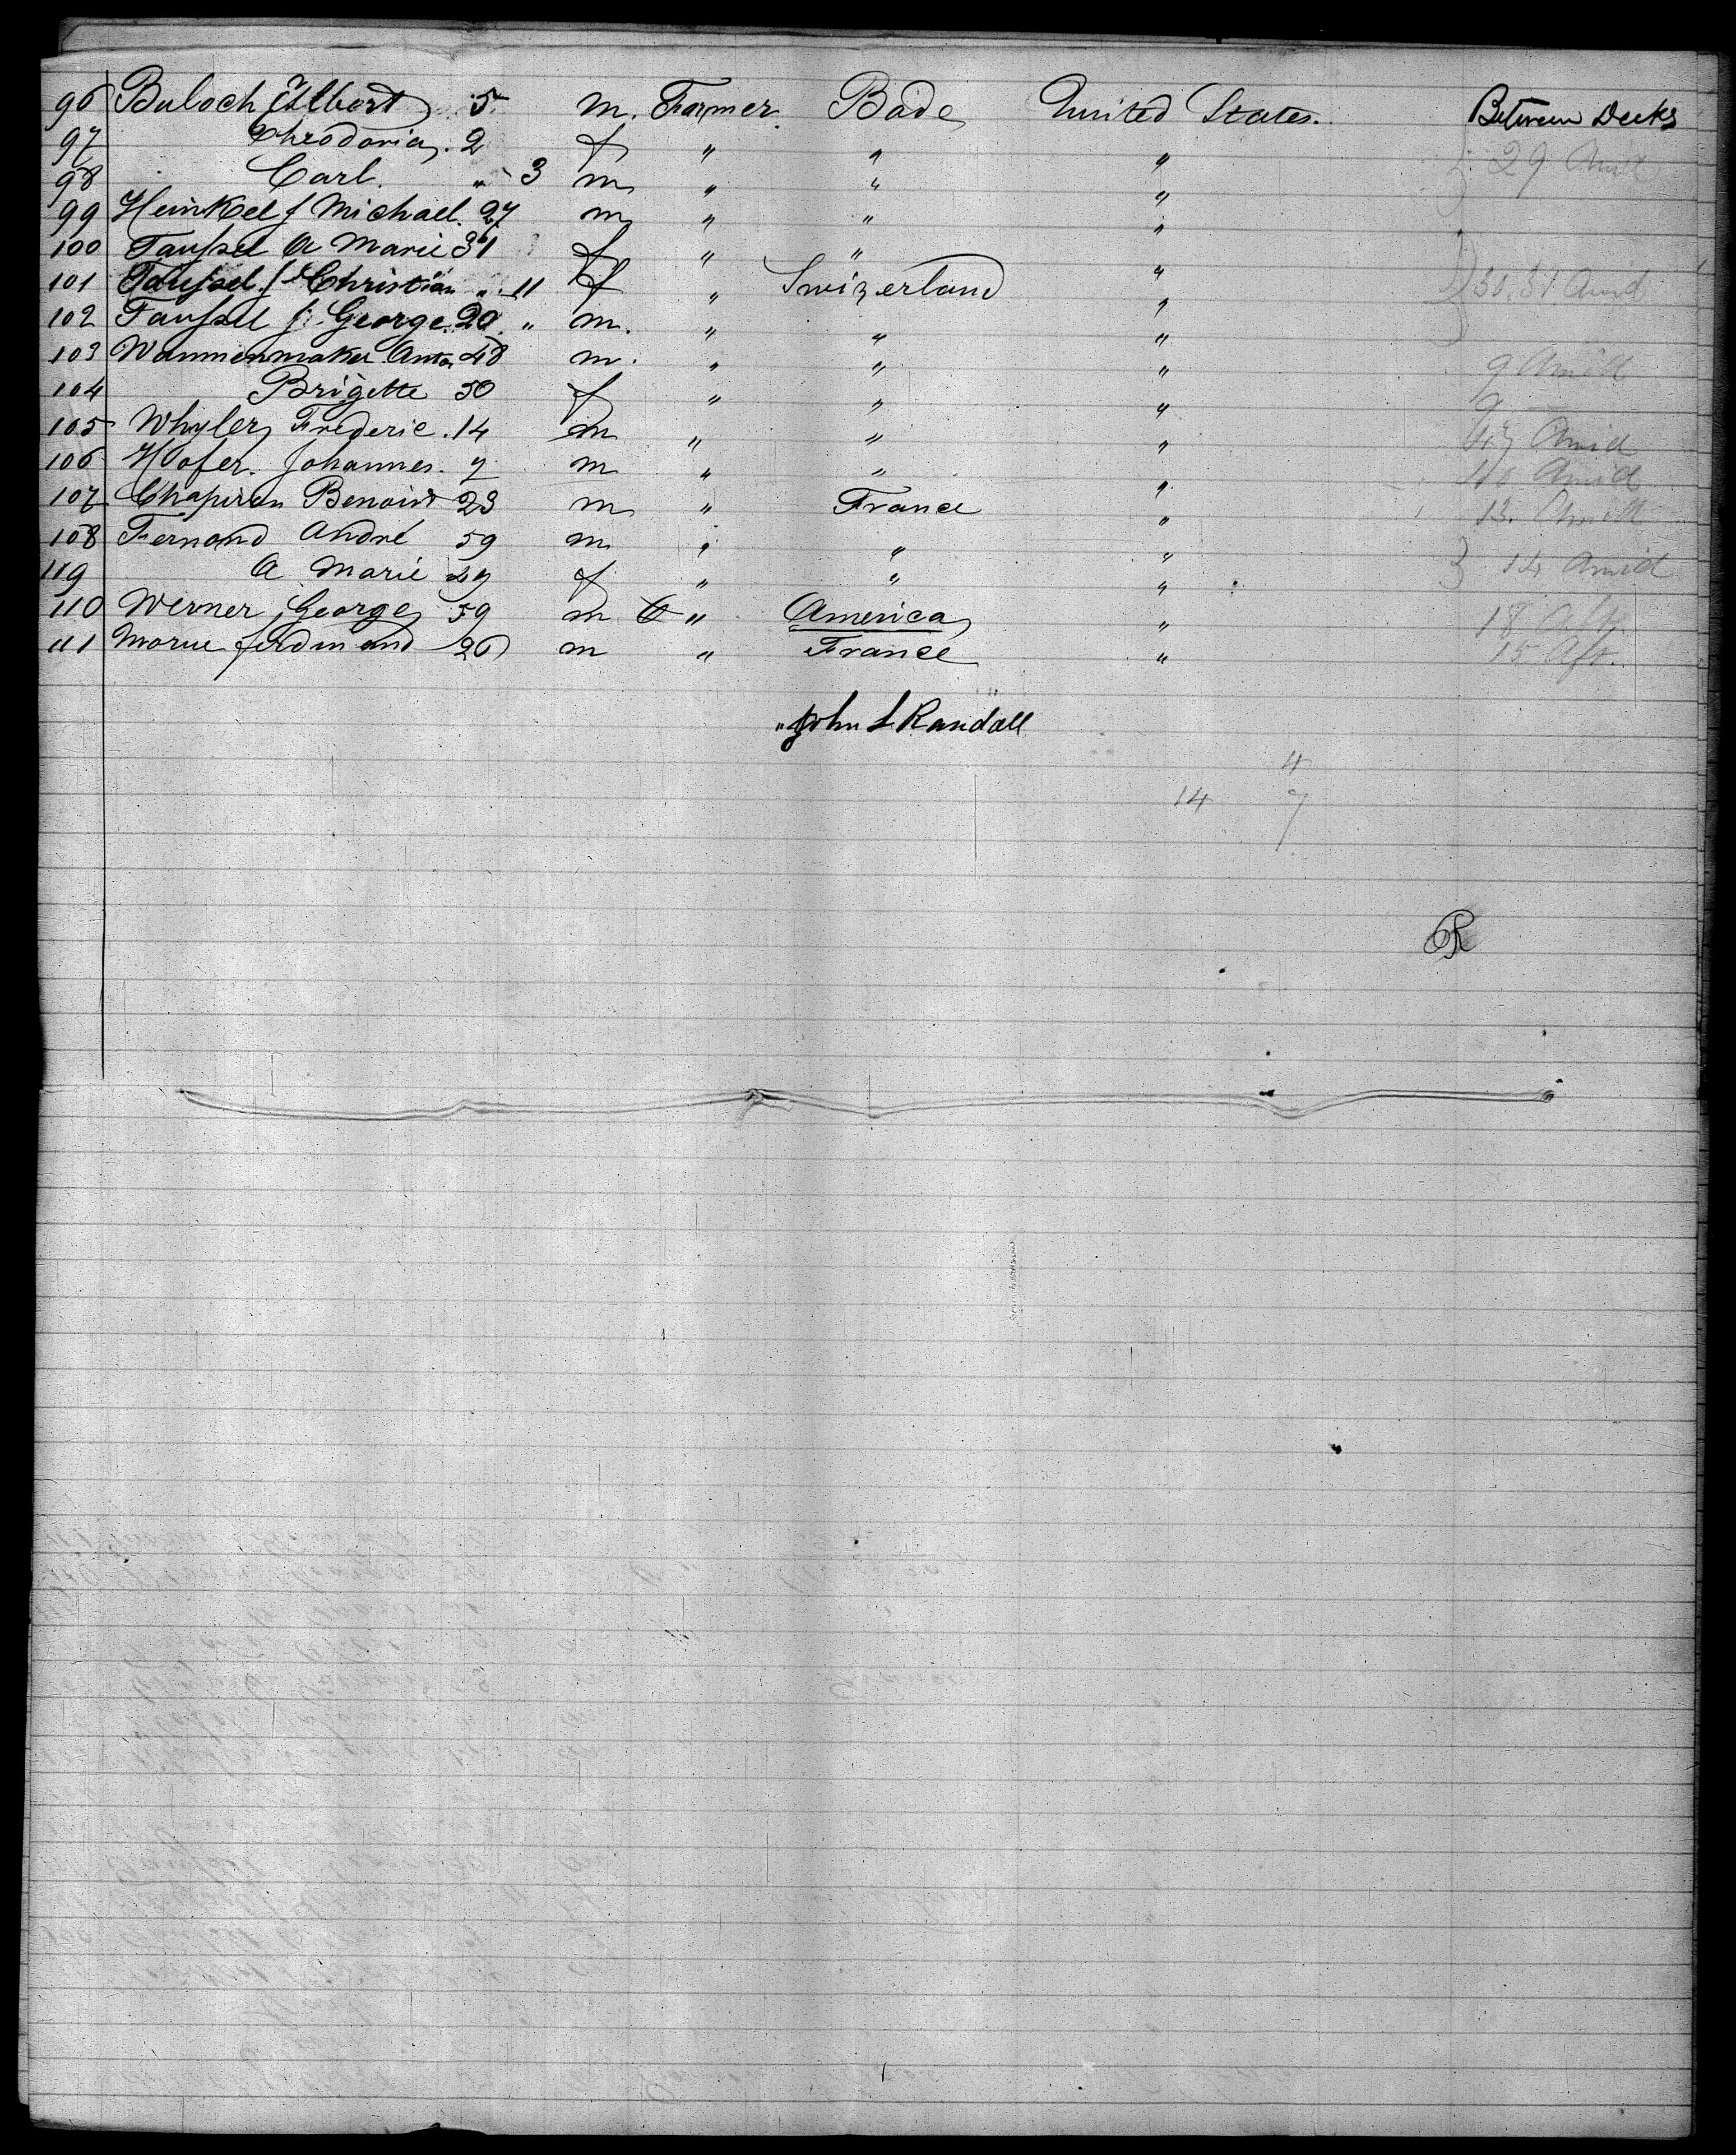 96 Buloch Elbert 5 m. Farmer Bade United States. Between Decks
97 Theodoria. 2 f " " " 29 Amid
98 Carl. " 3 m " " "
99 Heinkel J Michael. 27 m " " "
100 Taussel A Marie 31 f " " "
101 Taussel J Christian " 11 f " Swizerland " 30.31 Amid
102 Taussel J George 20 " m. " " "
103 Wannenmaker Anton 48 m. " " " 9 Amid
104 Brigette 50 f " " " 9
105 Whyler Frederic. 14 m " " " Amid
106 Hofer. Johannes. 7 m " " " 10 Amid
107 Chapiron Benoist 23 m " France " 13. Amid
108 Fernand André 59 m " " "
119 A Marie 49 f " " " } 14 Amid
110 Werner George 59 m " America " 18 Aft
111 Morue ferdinand 26 m " France " 15 Aft.
John L Randall
4
14 7
R